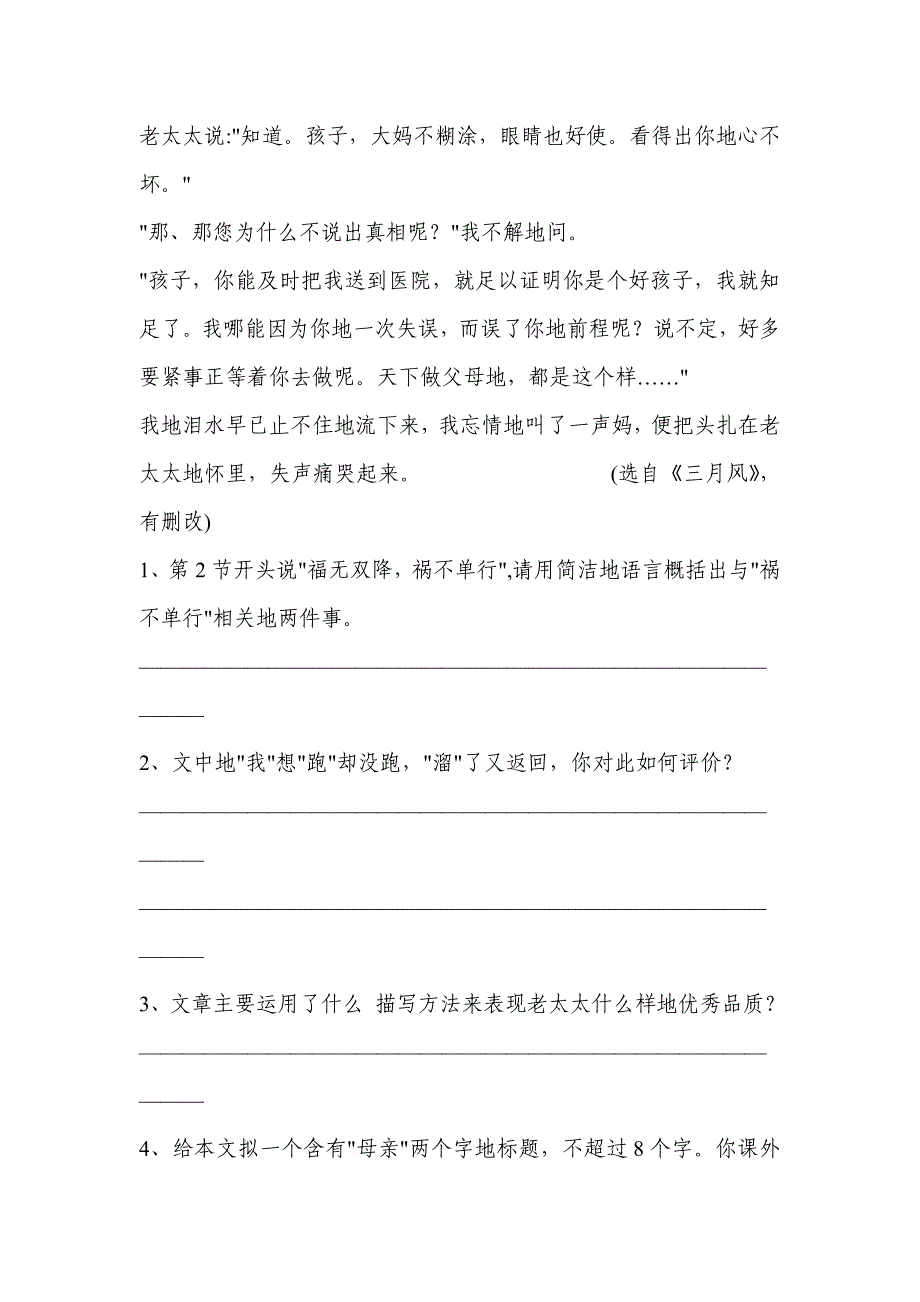 老太太说:"知道。孩子，大妈不糊涂，眼睛也好使。看得出你地心不
坏。"
"那、那您为什么不说出真相呢？"我不解地问。
"孩子，你能及时把我送到医院，就足以证明你是个好孩子，我就知
足了。我哪能因为你地一次失误，而误了你地前程呢？说不定，好多
要紧事正等着你去做呢。天下做父母地，都是这个样……"
我地泪水早已止不住地流下来，我忘情地叫了一声妈，便把头扎在老
太太地怀里，失声痛哭起来。 (选自《三月风》，
有删改)
1、第 2 节开头说"福无双降，祸不单行",请用简洁地语言概括出与"祸
不单行"相关地两件事。
2、文中地"我"想"跑"却没跑，"溜"了又返回，你对此如何评价？
3、文章主要运用了什么 描写方法来表现老太太什么样地优秀品质？
4、给本文拟一个含有"母亲"两个字地标题，不超过 8 个字。你课外